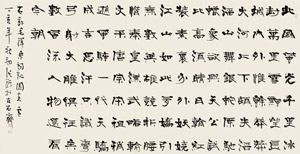 北國風光千里冰
封萬里雪飄望長
城內外惟餘莽莽
大河上下頓失滔
滔山舞銀蛇原馳
蠟象欲與天公試
比高須晴日看紅
裝素裹分外妖嬈
江山如此多嬌引
無數英雄競折腰
惜秦皇漢武略輸
文采唐宗宋祖稍
遜風騷一代天驕
成吉思汗只識彎
弓射大雕俱往矣
數風流人物還看
今朝
毛澤東詞沁園春雪